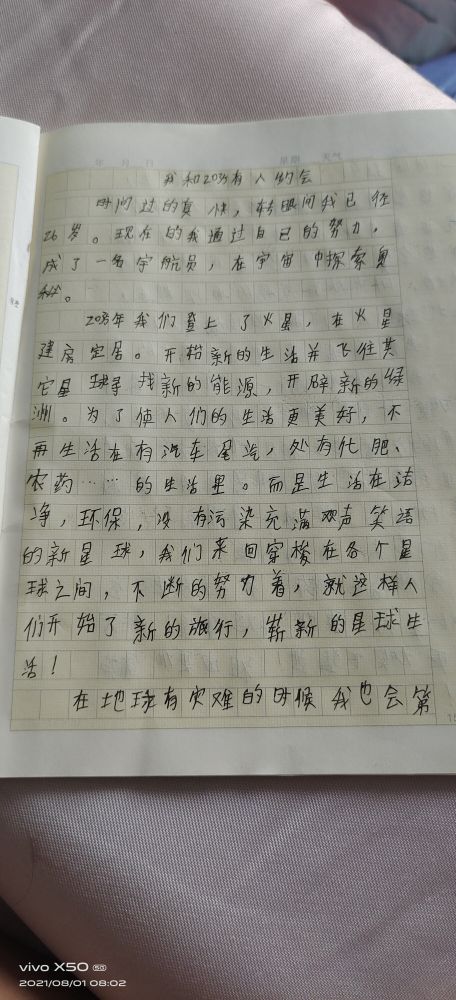 年 月 日 星期 天气
我和2035有人约会
时间过的真快，转眼间我已经
26岁。现在的我通过自己的努力，
成了一名宇航员，在宇宙中探索奥
秘。
2035年我们登上了火星，在火星
建房定居。开拓新的生活并飞往其
它星球寻找新的能源，开辟新的绿
洲。为了使人们的生活更美好，不
再生活在有汽车尾汽，处有化肥、
农药……的生活里。而是生活在洁
净，环保，没有污染充满欢声笑语
的新星球，我们来回穿梭在各个星
球之间，不断的努力着，就这样人
们开始了新的旅行，崭新的星球生
活！
在地球有灾难的时候我也会第
vivo X50 5G
2021/08/01 08:02